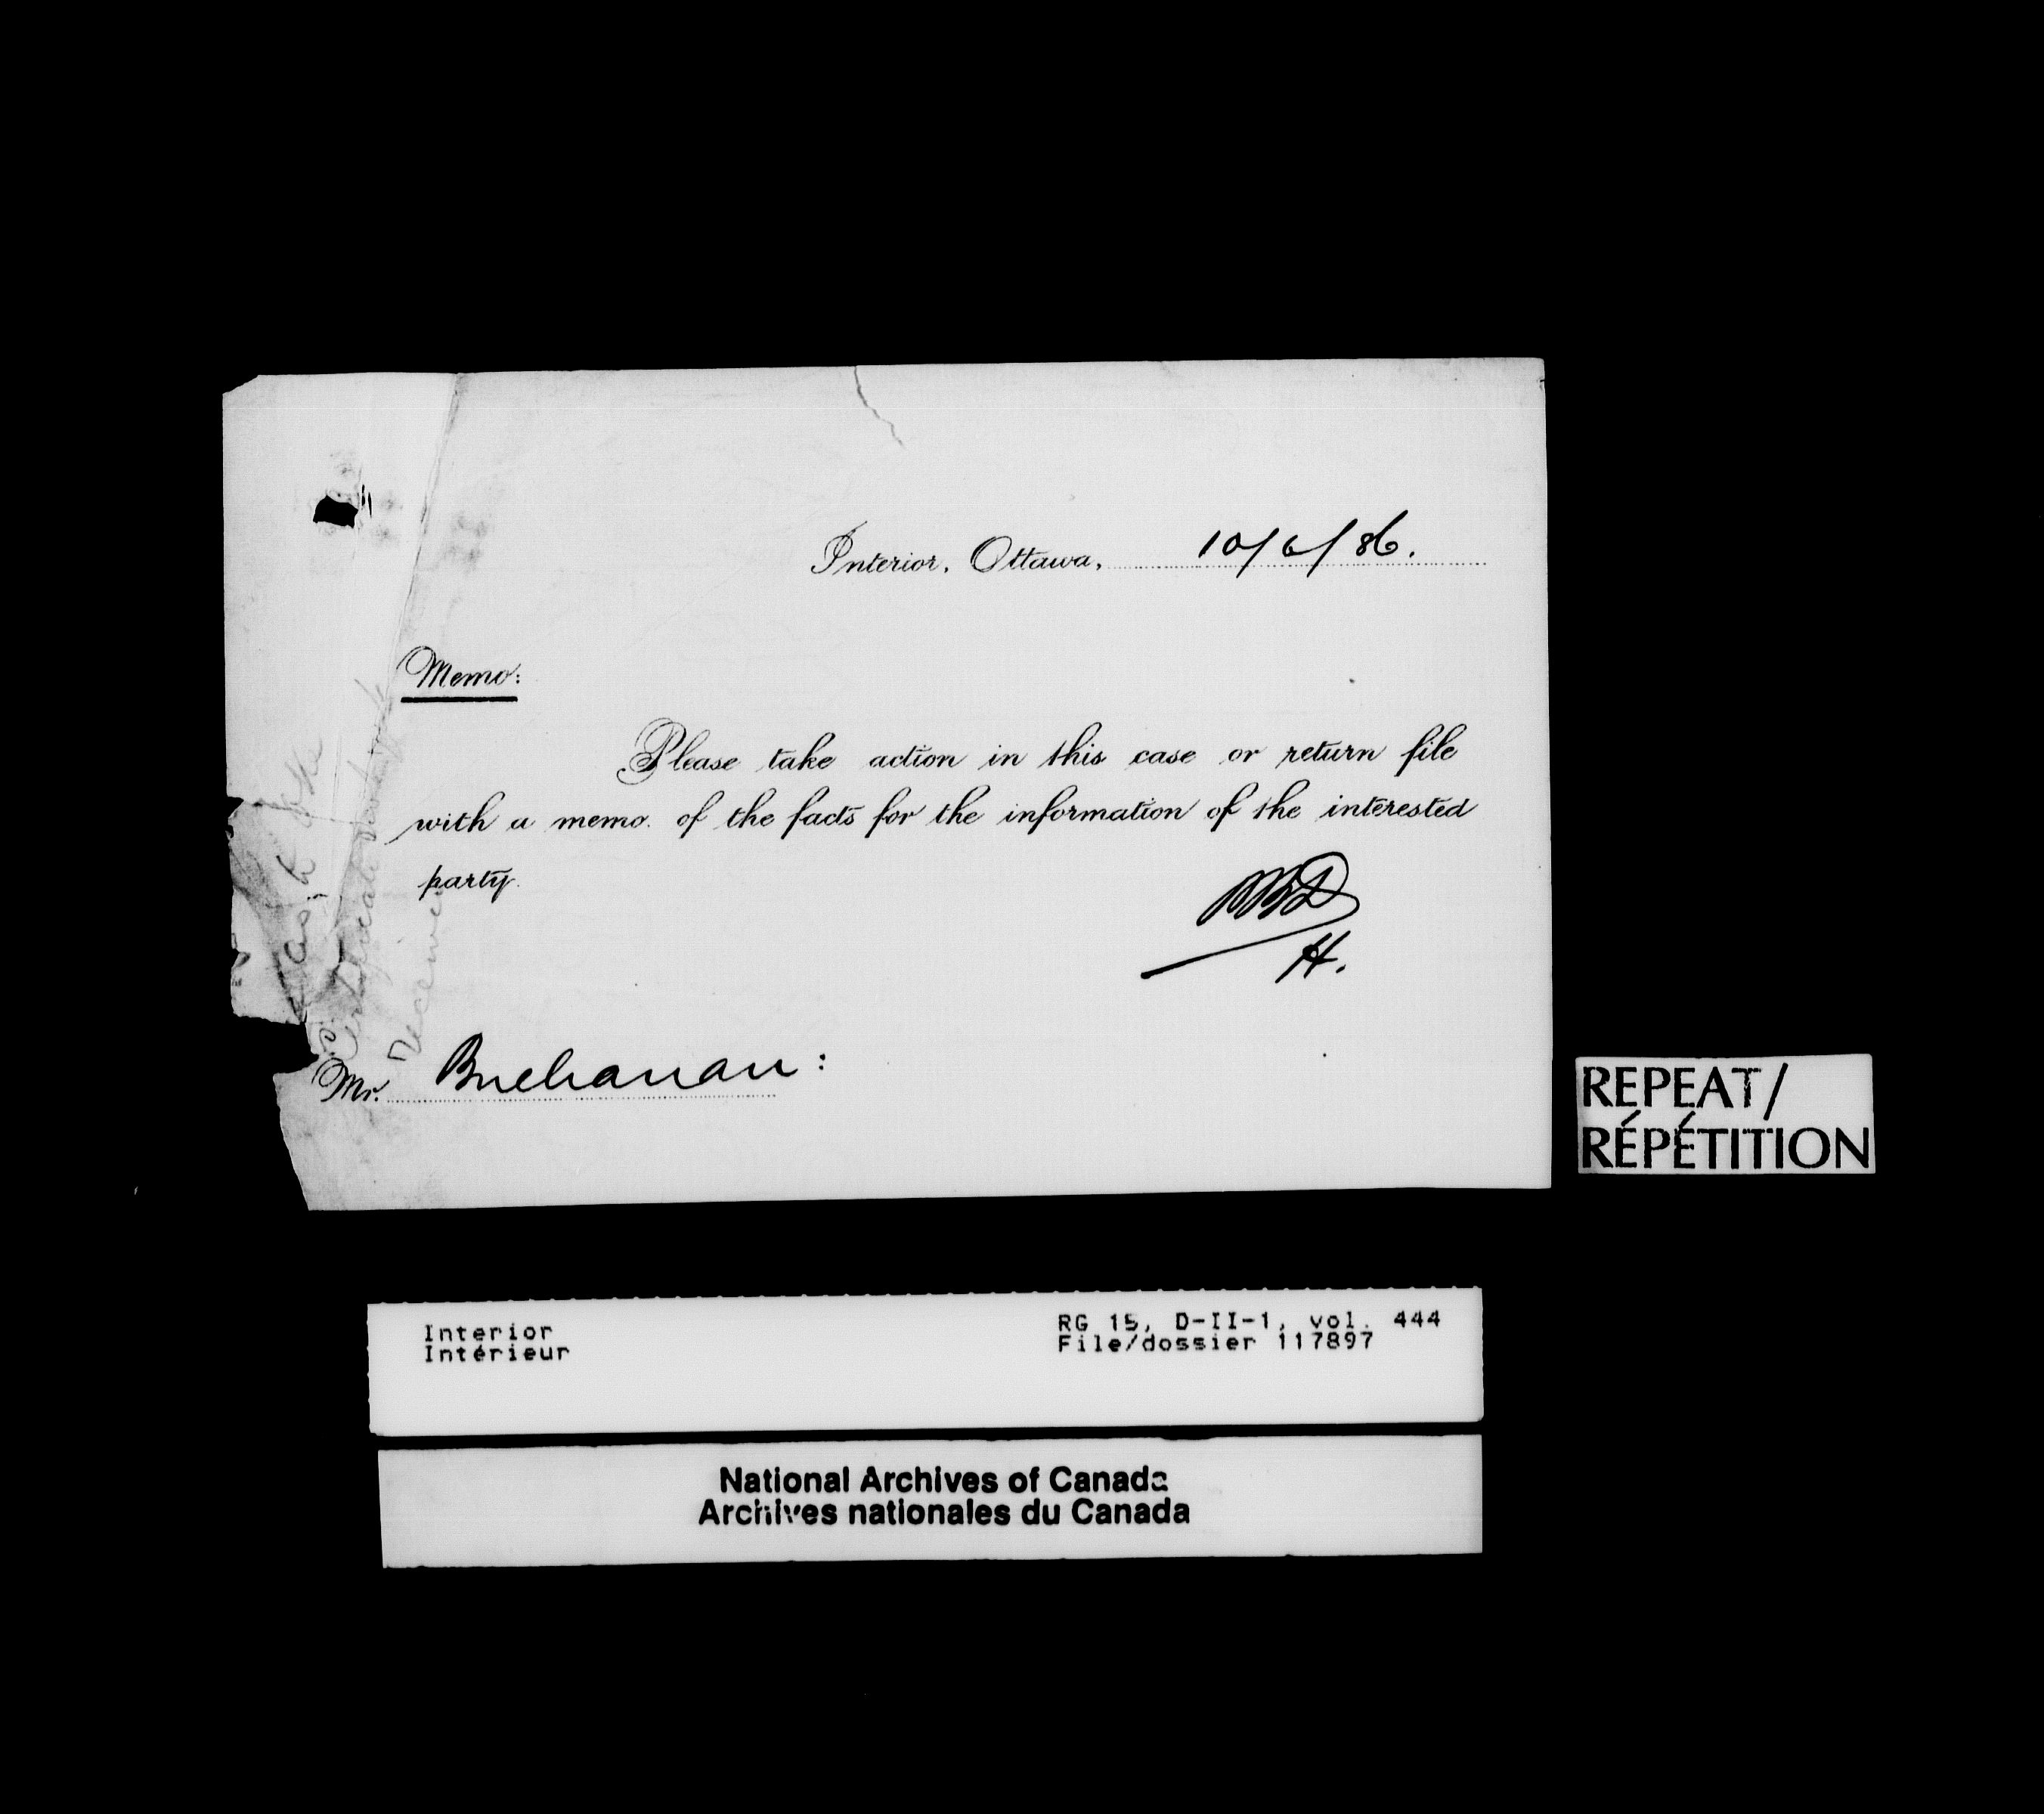 Interior, Ottawa, 10/6/86.
Memo:
Please take action in this case or return file
with a memo. of the facts for the information of the interested
party.
H.
Mr. Buchanan:
REPEAT/
RÉPÉTITION
Interior
Intérieur
RG 15, D-II-1, vol. 444
File/dossier 117897
National Archives of Canada
Archives nationales du Canada